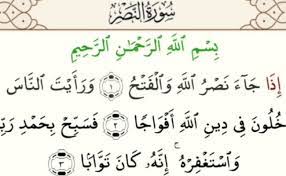 سُورَةُ النَّصْرِ
بِسْمِ ٱللَّهِ ٱلرَّحْمَـٰنِ ٱلرَّحِيمِ
إِذَا جَآءَ نَصْرُ ٱللَّهِ وَٱلْفَتْحُ ١ وَرَأَيْتَ ٱلنَّاسَ
خُلُونَ فِى دِينِ ٱللَّهِ أَفْوَاجًا ٢ فَسَبِّحْ بِحَمْدِ رَبِّ
وَٱسْتَغْفِرْهُ ۚ إِنَّهُۥ كَانَ تَوَّابًۢا ٣